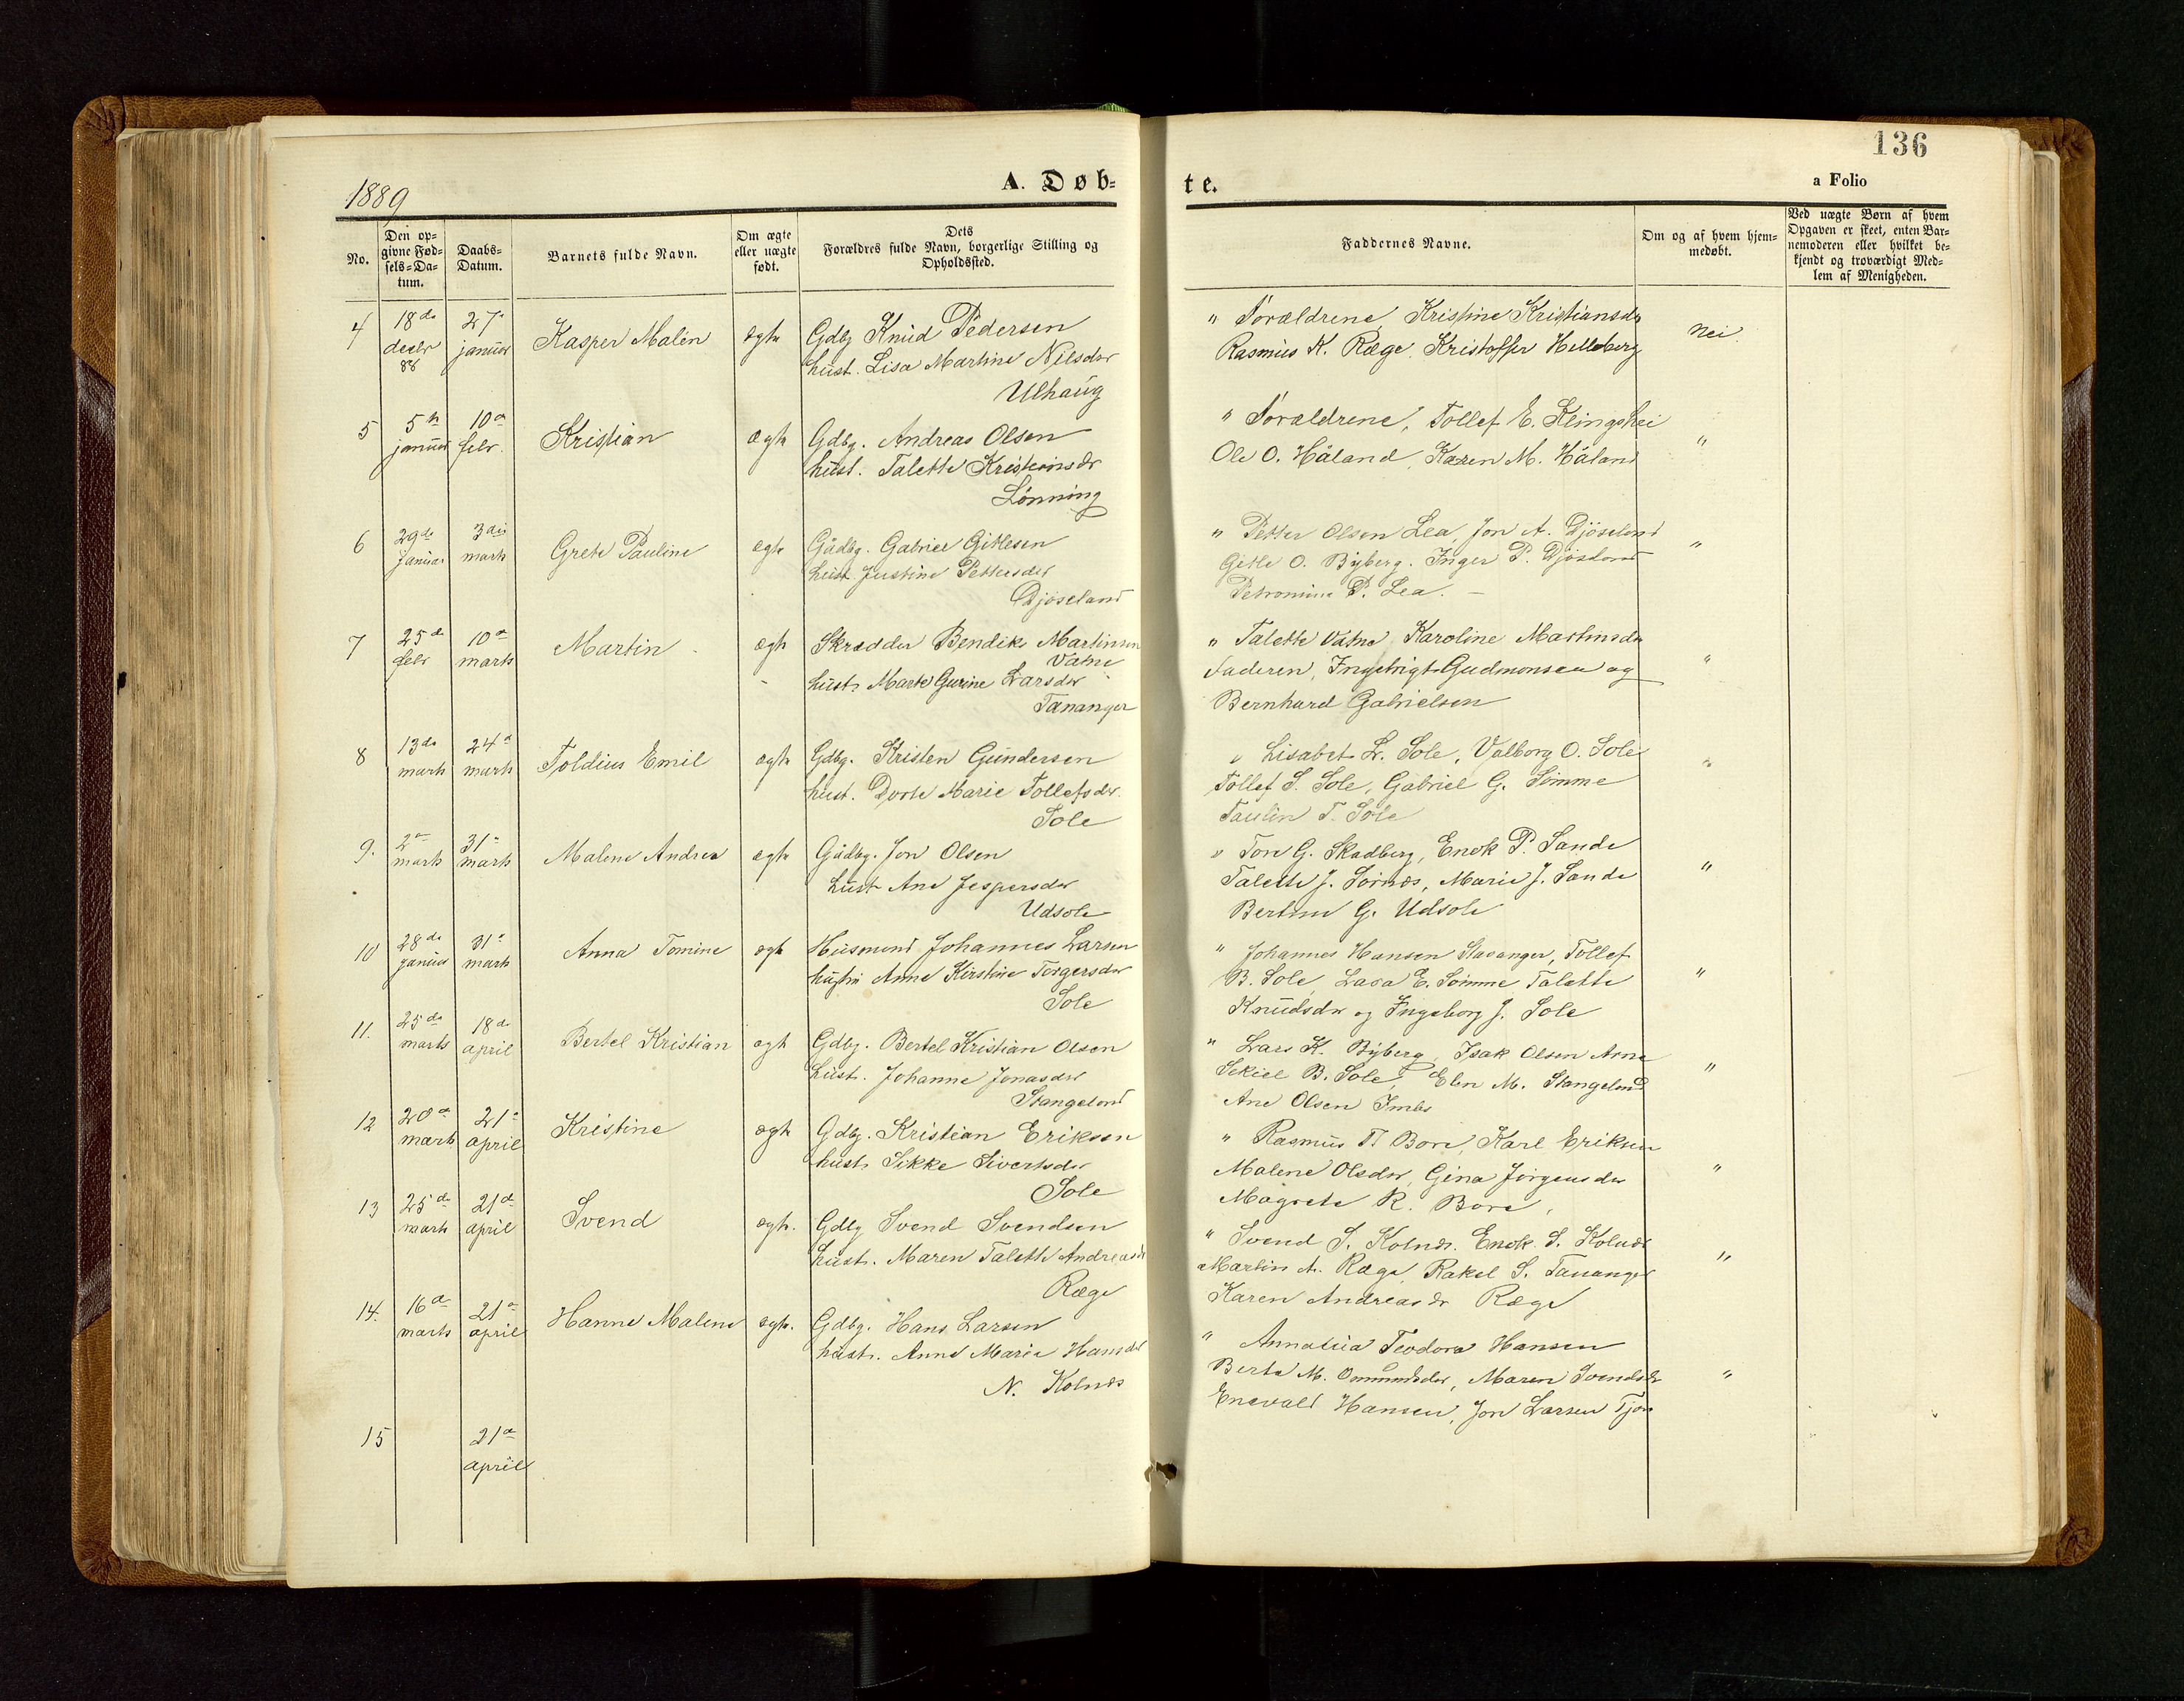 136
1889
A. Døb=
te.
a Folio
No.
Den op=
givne Fød=
sels=Da=
tum.
Daabs=
Datum.
Barnets fulde Navn.
Om ægte
eller uægte
født.
Dets
Forældres fulde Navn, borgerlige Stilling og
Opholdssted.
Faddernes Navne.
Om og af hvem hjem=
medøbt.
Ved uægte Børn af hvem
Opgaven er skeet, enten Bar=
nemoderen eller hvilket be=
kjendt og troværdigt Med=
lem af Menigheden.
4
18de
decbr
88
27
januar
Kasper Malin
ægte
Gdbg Knud Pedersen
hust. Lisa Martine Nilsdtr
Ulhaug
" Forældrene, Kristine Kristiansdr
Rasmus K. Ræge, Kristoffer Helleberg
Nei.
5
5te
januar
10de
febr.
Kristian
ægte
Gdbg. Andreas Olsen
hust. Talette Kristiansdr
Lönning
" Forældrene, Tollef E. Klingshei
Ole O. Håland, Karen M. Håland
"
6
29de
januar
3die
marts
Grete Pauline
ægte
Gådbg. Gabriel Gitlesen
hust. Justine Pettersdr
Djöseland
" Petter Olsen Lea, Jon A. Djöseland
Gitle O. Byberg. Inger P. Djöseland
Petromine P. Lea. –
"
7
25de
febr
10de
marts
Martin
ægte
Skrædder Bendik Martinsen
Vatne
hust. Marte Gurine Larsdr
Tananger
" Talette Vatne, Karoline Martinsdr
Faderen, Ingebrigt Gudmonsen og
Bernhard Gabrielsen
"
8
13de
marts
24de
marts
Toldius Emil
ægte
Gdbg. Kristen Gundersen
hust. Dorte Marie Tollefsdr.
Sole
" Lisabet L. Sole, Valborg O. Sole
Tollef S. Sole, Gabriel G. Sömme
Paulin T. Sole
"
9.
2de
marts
31te
marts
Malene Andrea
ægte
Gådbg. Jon Olsen
hust. Ane Jespersdr
Udsole
" Tore G. Skadberg, Enok P. Sande
Talette J. Sörnæs, Marie J. Sande
Bertine G. Udsole
"
10
28de
januar
31te
marts
Anna Tomine
ægte
Husmand Johannes Larsen
hustru Anne Kirstine Torgersdr
Sole
" Johannes Hansen Stavanger, Tollef
B. Sole, Lava E. Sömme, Talette
Knudsdr og Ingeborg J. Sole
"
11.
25de
marts
18de
april
Bertel Kristian
ægte
Gdbg. Bertel Kristian Olsen
hust. Johanne Jonasdr
Stangeland
" Lars K. Byberg, Isak Olsen Arne
Sekiel B. Sole, Elen M. Stangeland
Ane Olsen Imbs
"
12
20de
marts
21de
april
Kristine
ægte
Gdbg. Kristian Eriksen
hust. Sikke Sivertsdr
Sole
" Rasmus T. Bore, Karl Eriksen
Malene Olsdr, Gina Jörgensdr
Magrete R. Bore,
"
13
25de
marts
21de
april
Svend
ægte.
Gdbg Svend Svendsen
hust. Maren Talette Andreasdr
Ræge
" Svend S. Kolnæs. Enok S. Kolnæs
Martin A. Ræge, Rakel S. Tananger
Karen Andreasdr Ræge
"
14.
16de
marts
21de
april
Hanne Malene
ægte.
Gdbg. Hans Larsen
hust. Anne Maria Hansdr
N. Kolnæs
" Teodora Hansen
Berta M. Ommundsdr, Maren Svendsdr
Enevald Hansen, Jon Larsen Tjora
"
15
21de
april